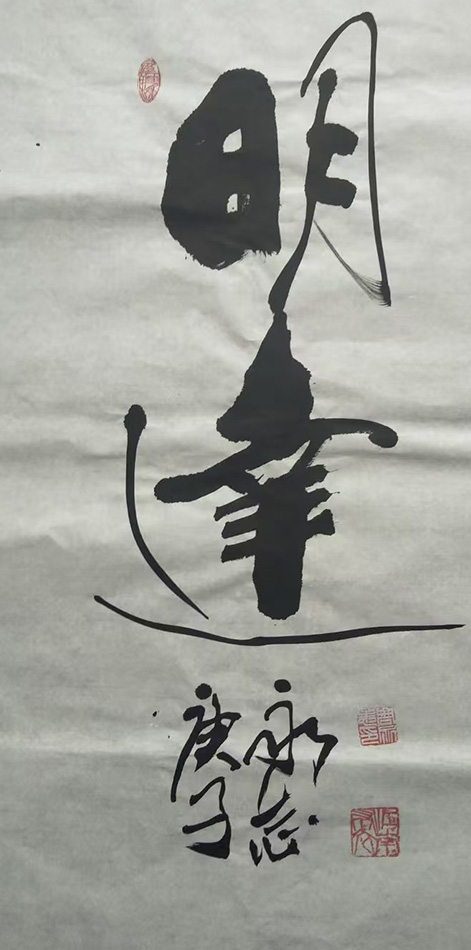 明達
永志
庚子